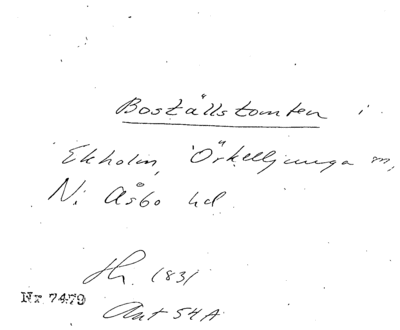 Boställstomten i
Ekholm, Örkelljunga sn,
N. Åsbo hd
Hr. 1831
Nr 7479
Ant 54A